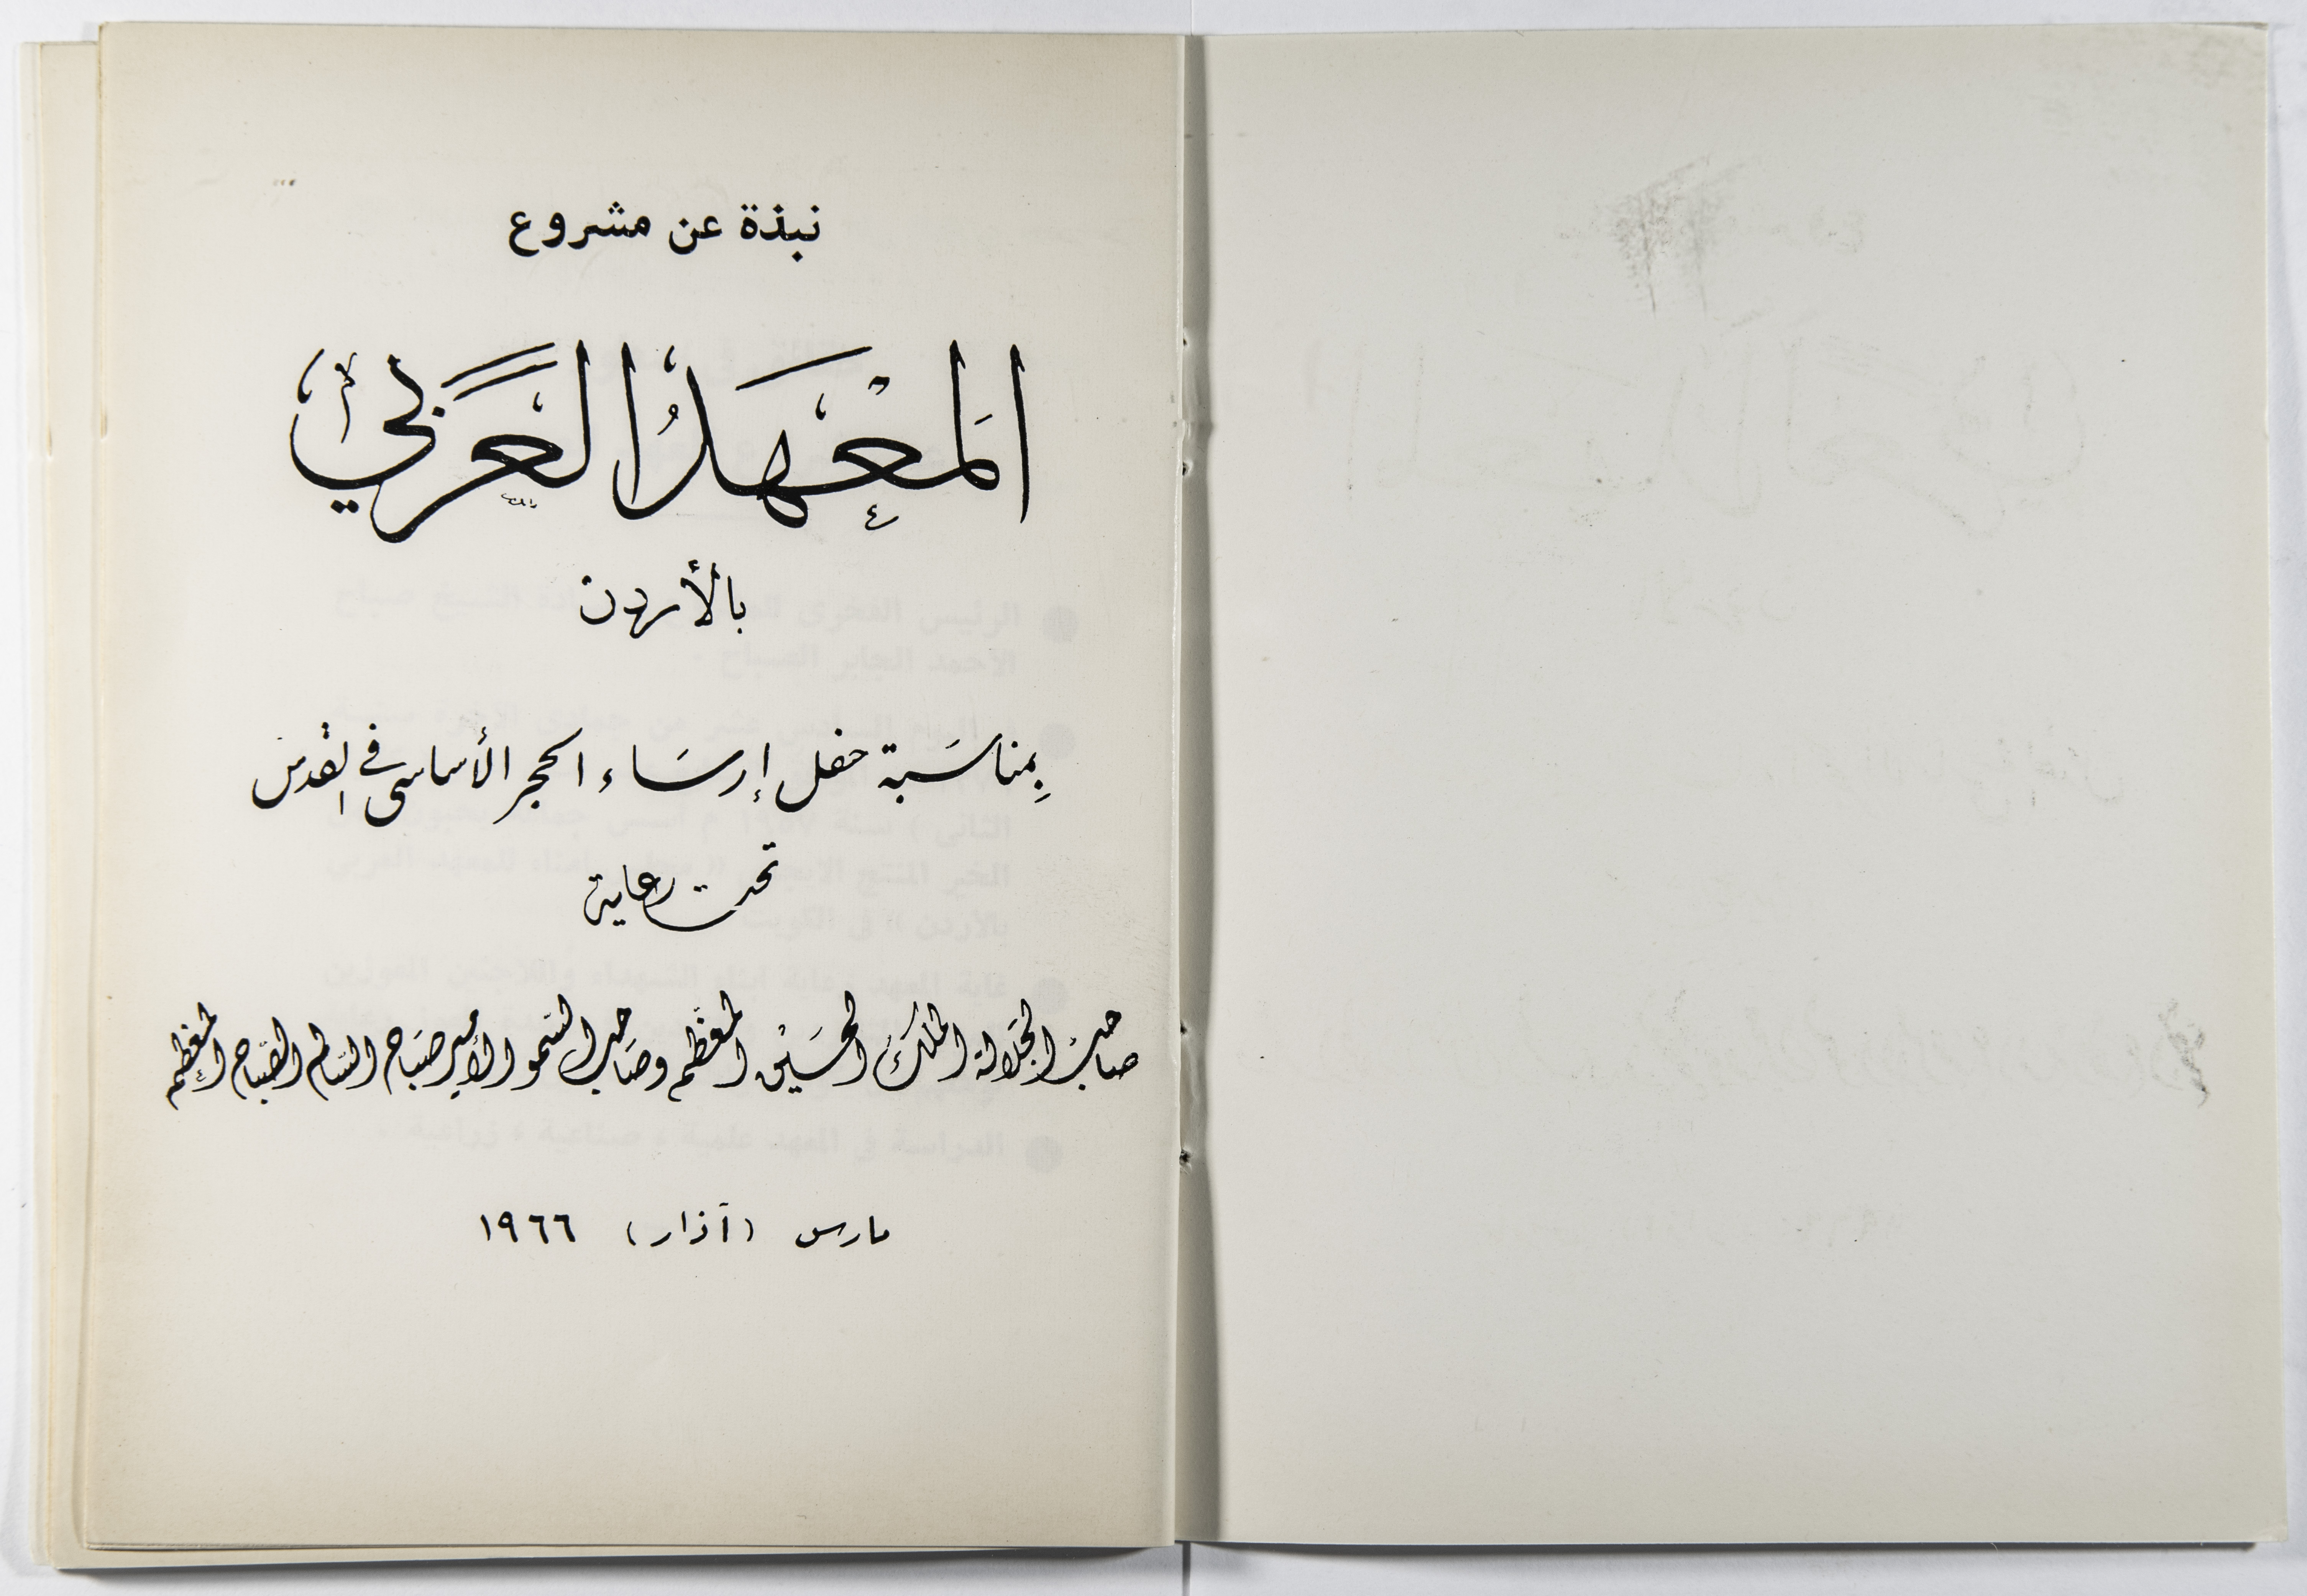 نبذة عن مشروع
المَعْهَدُ العَرَبيُّ
بالأردن
بِمناسَبة حفل إرسَاء الحجر الأساسى في القدس
تحت رعاية
صاحب الجَلالة الملك الحسَين المعَظم وصَاحب السّمو الأمير صبَاح السَالم الصّباح المعظم
مارس (آذار) ١٩٦٦